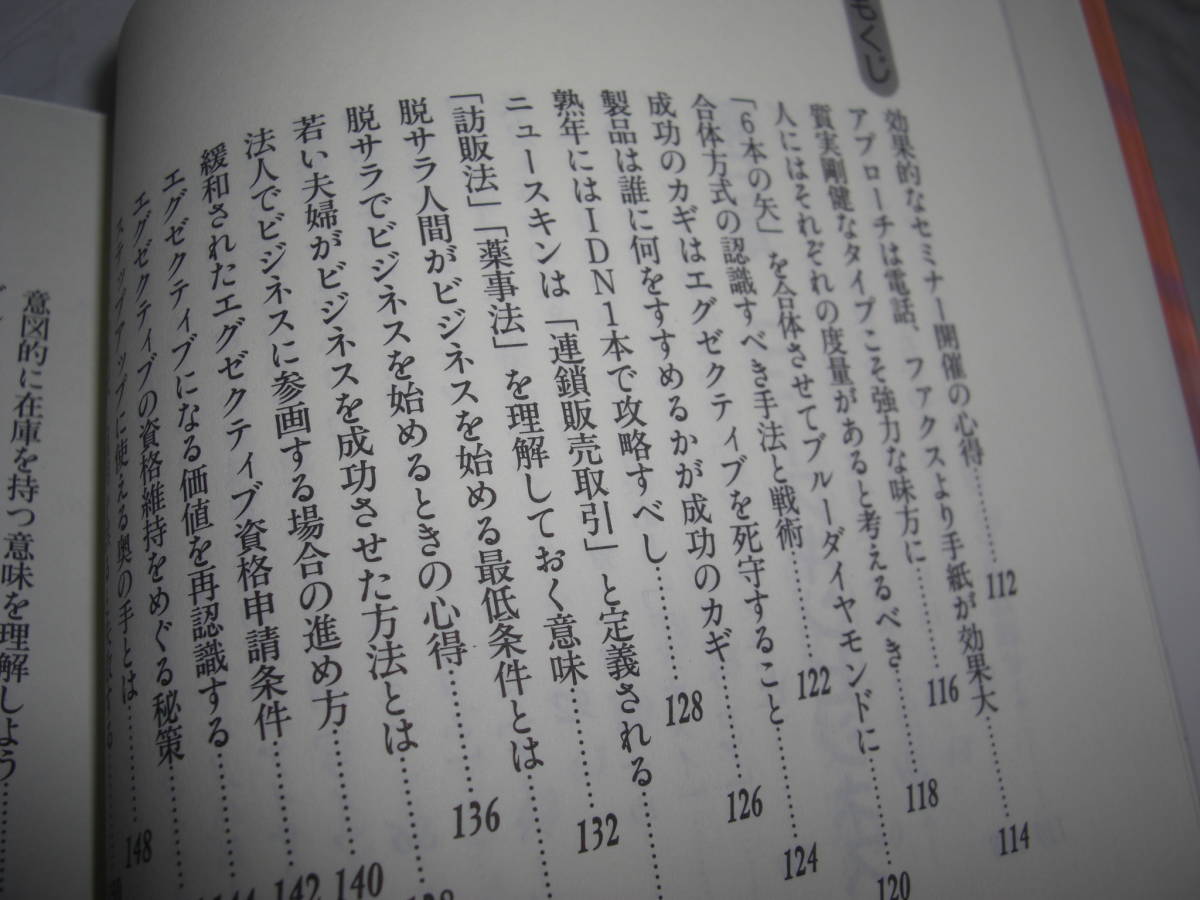 もくじ
効果的なセミナー開催の心得……112
アプローチは電話、ファクスより手紙が効果大……114
質実剛健なタイプこそ強力な味方に……116
人にはそれぞれの度量があると考えるべき……118
「6本の矢」を合体させてブルーダイヤモンドに……120
合体方式の認識すべき手法と戦術……122
成功のカギはエグゼクティブを死守すること……124
製品は誰に何をすすめるかが成功のカギ……126
熟年にはIDN1本で攻略すべし……128
ニュースキンは「連鎖販売取引」と定義される……
「訪販法」「薬事法」を理解しておく意味……132
脱サラ人間がビジネスを始める最低条件とは……
脱サラでビジネスを始めるときの心得……136
若い夫婦がビジネスを成功させた方法とは……138
法人でビジネスに参画する場合の進め方……140
緩和されたエグゼクティブ資格申請条件……142
エグゼクティブになる価値を再認識する……144
エグゼクティブの資格維持をめぐる秘策……
ステップアップに使える奥の手とは……148
意図的に在庫を持つ意味を理解しよう……